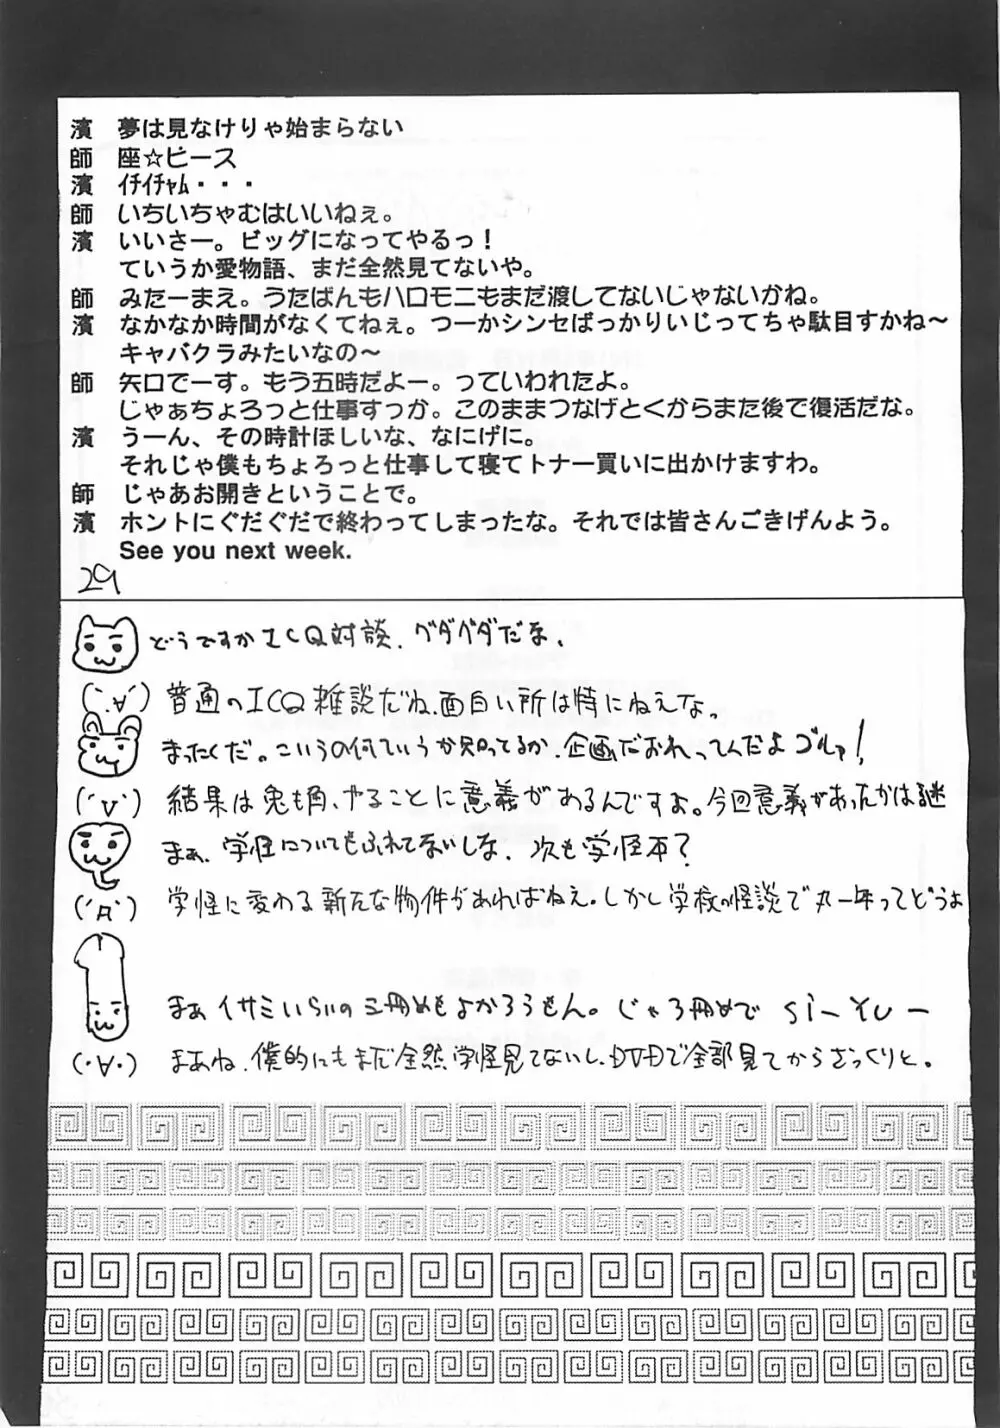 濱 夢は見なけりゃ始まらない
師 座☆ピース
濱 ｲﾁｲﾁｬﾑ・・・
師 いちいちゃむはいいねぇ。
濱 いいさー。ビッグになってやるっ！
ていうか愛物語、まだ全然見てないや。
師 みたーまえ。うたばんもハロモニもまだ渡してないじゃないかね。
濱 なかなか時間がなくてねぇ。つーかシンセばっかりいじってちゃ駄目すかね〜
キャバクラみたいなの〜
師 矢口でーす。もう五時だよー。っていわれたよ。
じゃぁちょろっと仕事すっか。このままつなげとくからまた後で復活だな。
濱 うーん、その時計ほしいな、なにげに。
それじゃ僕もちょろっと仕事して寝てトナー買いに出かけますわ。
師 じゃあお開きということで。
濱 ホントにぐだぐだで終わってしまったな。それでは皆さんごきげんよう。
See you next week.
29
どうですかICQ対談、グダグダだな。
(˙∀˙) 普通のICQ雑談だね、面白い所は特にねえな。
まったくだ。こいうの何ていうか知ってるか、企画だおれってんだよゴルァ!
(´∀`) 結果は兎も角、やることに意義があるんですよ。今回意義があったかは謎
まぁ、学怪についてもふれてないしな、次も学怪本?
(´Д`) 学怪に変わる新たな物件があればねえ。しかし学校の怪談で丸一年ってどうよ
まぁイサミいらいの三冊めもよかろうもん。じゃ3冊めで Si-Yu-
(・∀・) まあね、僕的にもまだ全然学怪見てないし、DVDで全部見てからざっくりと。